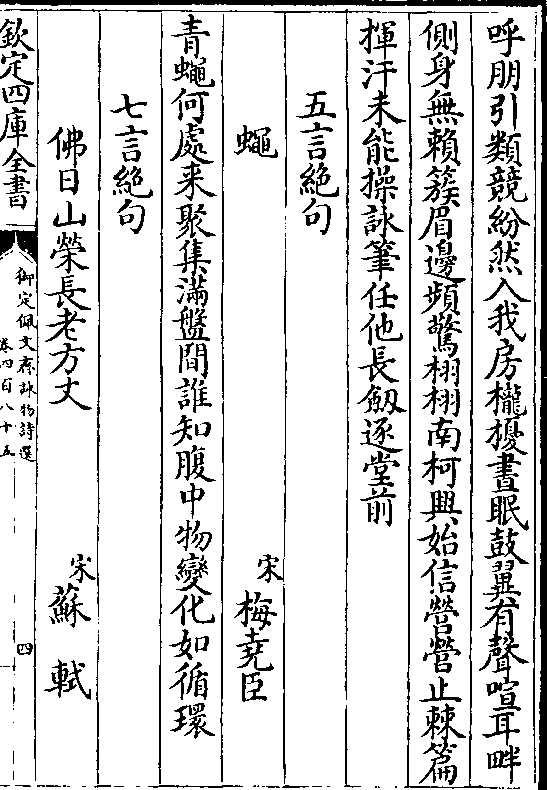 呼朋引類競紛然入我房櫳擾晝眠鼓翼有聲喧耳畔
側身無賴簇眉邊頻驚栩栩南柯興始信營營止棘篇
揮汗未能操詠筆任他長劔逐堂前
五言絶句
蠅 宋 梅堯臣
青蠅何處来聚集滿盤間誰知腹中物變化如循環
七言絶句
佛日山榮長老方丈 宋 蘇軾
欽定四庫全書
御定佩文齋詠物詩選
卷四百八十五
四